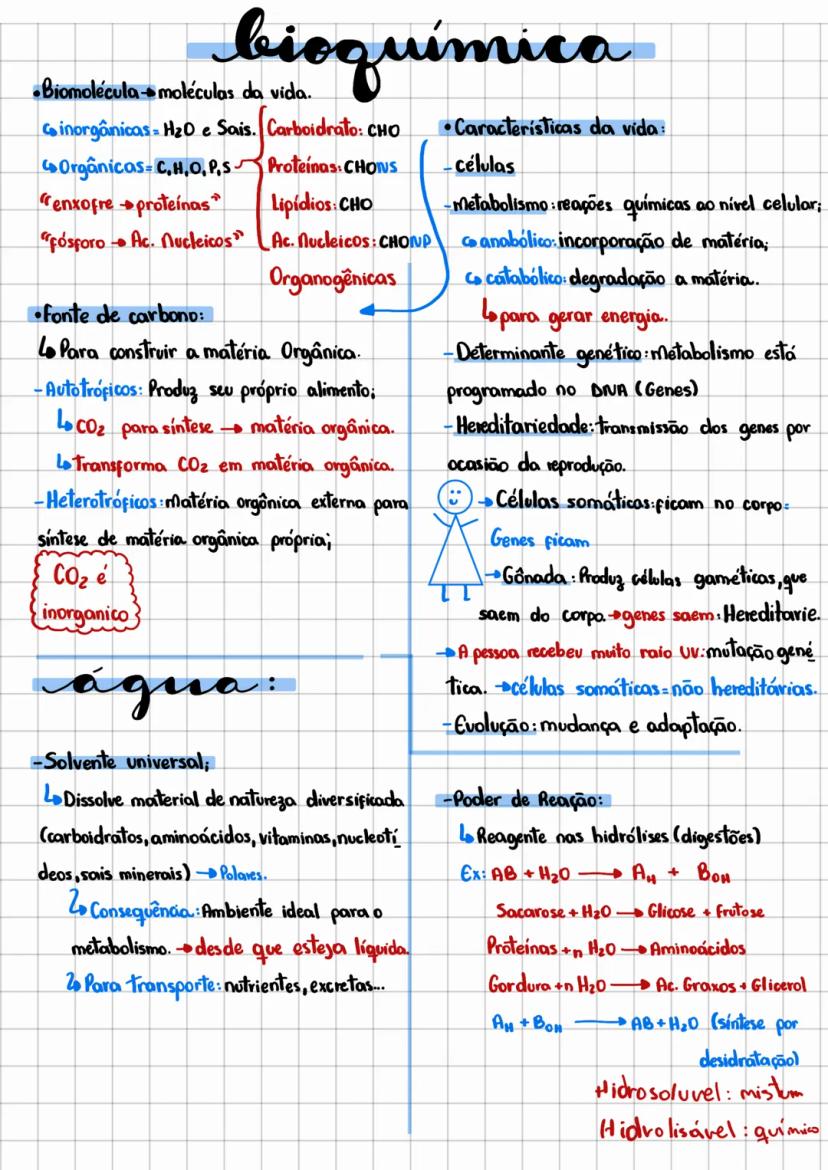 bioquímica
•Biomolécula→moléculas da vida.
↳inorgânicas = H2O e Sais.
↳Orgânicas= C,H,O,P,S
"enxofre →proteínas"
"fósforo → Ac. Nucleicos"
Carboidrato: CHO
Proteínas: CHONS
Lipídios: CHO
Ac. Nucleicos: CHONP
Organogênicas
•Fonte de carbono:
↳Para construir a matéria Orgânica.
-Autotróficos: Produz seu próprio alimento;
↳CO2 para síntese → matéria orgânica.
↳Transforma CO2 em matéria orgânica.
-Heterotróficos: Matéria orgônica externa para
síntese de matéria orgânica própria;
CO2 é
inorganico
•Características da vida:
-células
-metabolismo: reações químicas ao nível celular;
↳anabólico: incorporação de matéria;
↳catabólico: degradação a matéria.
↳para gerar energia.
-Determinante genético: Metabolismo está
programado no DNA (Genes)
-Hereditariedade: transmissão dos genes por
ocasião da reprodução.
→Células somáticas: ficam no corpo:
Genes ficam
→Gônada: Produz células gaméticas, que
saem do corpo.→genes saem: Hereditarie.
→A pessoa recebeu muito raio UV: mutação gené
tica. →células somáticas=não hereditárias.
-Evolução: mudança e adaptação.
água:
-Solvente universal;
↳Dissolve material de natureza diversificada
(carboidratos, aminoácidos, vitaminas, nucleotí_
deos, sais minerais) →Polares.
↳Consequência: Ambiente ideal para o
metabolismo. →desde que esteja líquida.
↳Para transporte: nutrientes, excretas...
-Poder de Reação:
↳Reagente nas hidrólises (digestões)
Ex: AB + H2O → AH + BOH
Sacarose + H2O → Glicose + Frutose
Proteínas +n H2O → Aminoácidos
Gordura +n H2O → Ac. Graxos + Glicerol
AH + BOH → AB+H2O (síntese por
desidratação)
Hidrosoluvel: mistum
Hidrolisável: químico